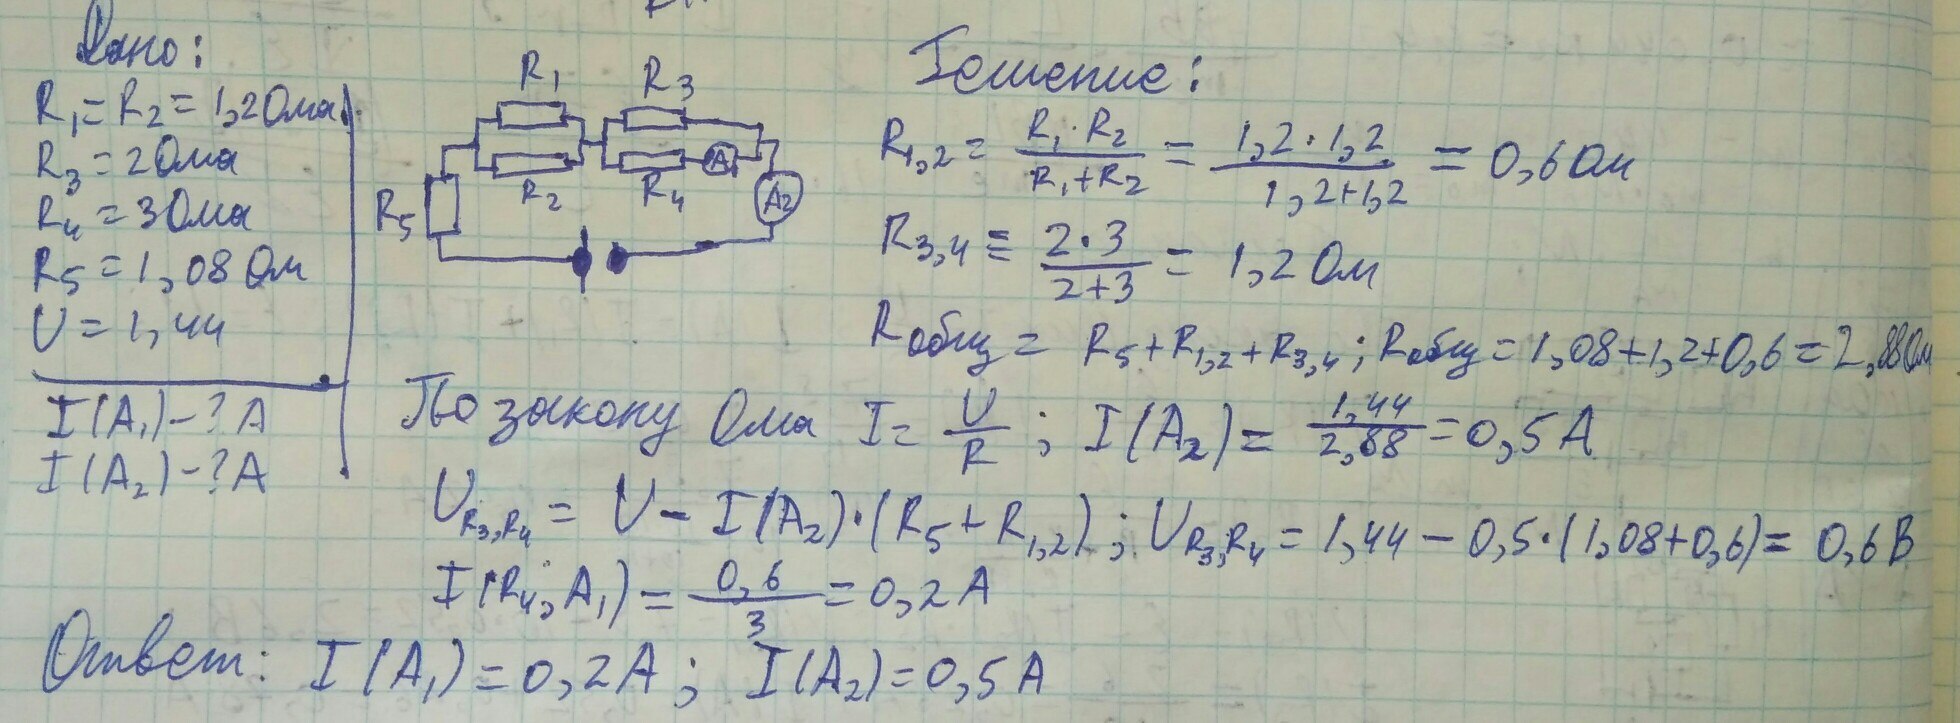 Дано:
R₁ = R₂ = 1,2 Ома
R₃ = 2 Ома
R₄ = 3 Ома
R₅ = 1,08 Ом
U = 1,44
I(A₁) - ? A
I(A₂) - ? A
R₁ R₃
R₂ R₄ A
R₅ A₂
Решение:
R₁,₂ = R₁·R₂ / R₁+R₂ = 1,2·1,2 / 1,2+1,2 = 0,6 Ом
R₃,₄ = 2·3 / 2+3 = 1,2 Ом
Rобщ = R₅+R₁,₂+R₃,₄; Rобщ = 1,08+1,2+0,6 = 2,88 Ом
По закону Ома I = U / R; I(A₂) = 1,44 / 2,88 = 0,5 A
U_R₃,R₄ = U - I(A₂)·(R₅+R₁,₂); U_R₃,R₄ = 1,44 - 0,5·(1,08+0,6) = 0,6 В
I(R₄, A₁) = 0,6 / 3 = 0,2 A
Ответ: I(A₁) = 0,2 A; I(A₂) = 0,5 A